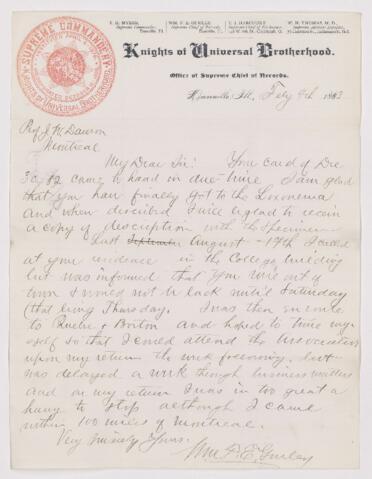 SUPREME COMMANDERY
KNIGHTS OF UNIVERSAL BROTHERHOOD
Knights of Universal Brotherhood.
Office of Supreme Chief of Records.
Danville, Ill., Feby 9th 1883
Prof J. W. Dawson
Montreal
My Dear Sir: Your card of Dec
30, 82 came to hand in due time I am glad
that you have finally got to the Loxonema
and when described I will be glad to receive
a copy of description with the specimen
Last September August 17th I called
at your residence in the College building
but was informed that you were out of
town & would not be back until Saturday
(that being Thursday. I was then en route
to Quebec & Boston and hoped to time my-
self so that I could attend the Association
upon my return the week following, but
was delayed a week though business matters
and on my return I was in too great a
hurry to stop although I came
within 100 miles of Montreal.
Very Sincerely Yours.
Wm. F. E. Gurley